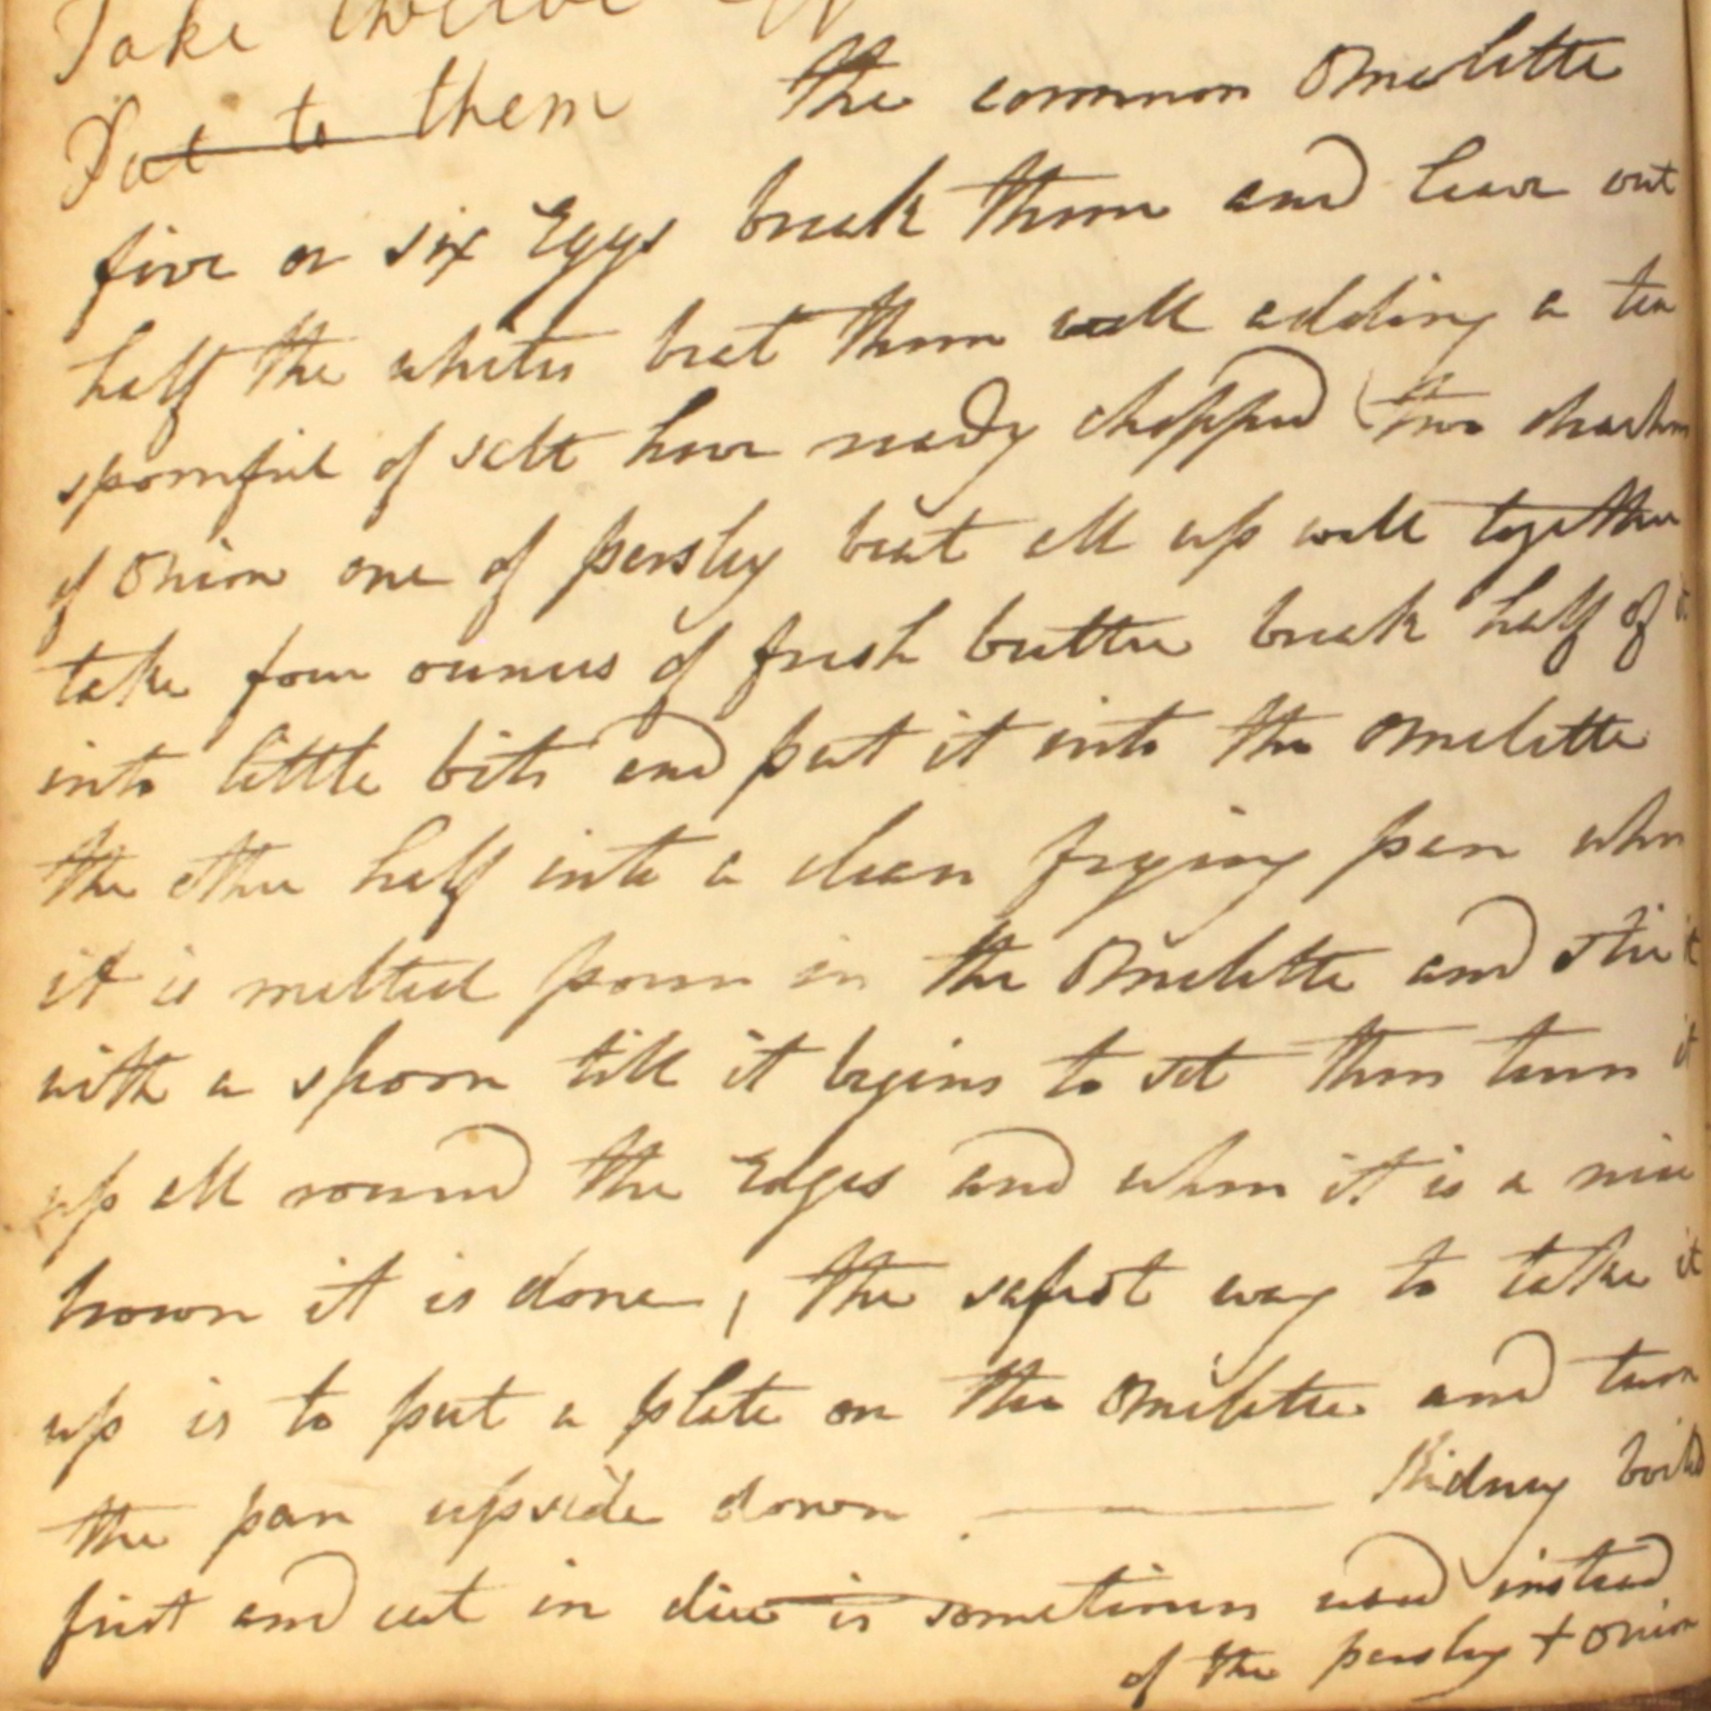 Take twelve
Put to them The common Omelette
five or six Eggs break them and leave out
half the whites beat them well adding a tea
spoonful of salt have ready chopped two drachms
of Onion one of parsley beat all up well together
take four ounces of fresh butter break half of it
into little bits and put it into the Omelette
the other half into a clean frying pan when
it is melted pour in the Omelette and stir it
with a spoon till it begins to set then turn it
up all round the Edges and when it is a nice
brown it is done, the safest way to take it
up is to put a plate on the Omelette and turn
the pan upside down — Kidney boild
first and cut in dice is sometimes used instead
of the parsley + Onion